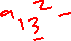 9 13² -